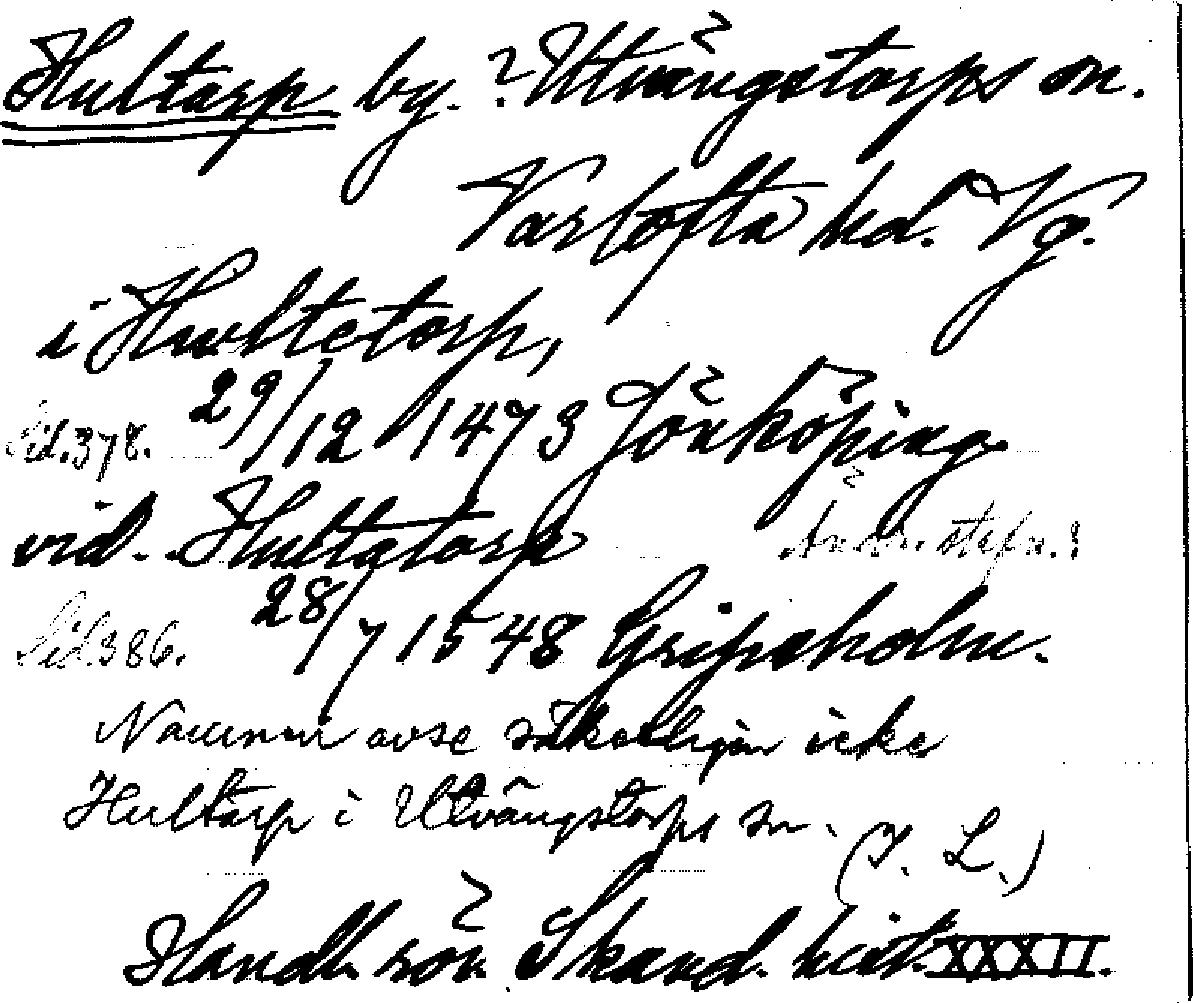 Hultarp by. ? Utvängstorps sn.
Vartofta hd. Vg.
i Hwltetorp,
Sid. 378. 29/12 1473 Jönköping
vid. Hultatorp
Sid. 386. 28/7 1548 Gripsholm.
Namnen avse säkerligen icke
Hultarp i Utvängstorps sn.
(I. L.)
Handl. rör. Skand. hist. XXXII.